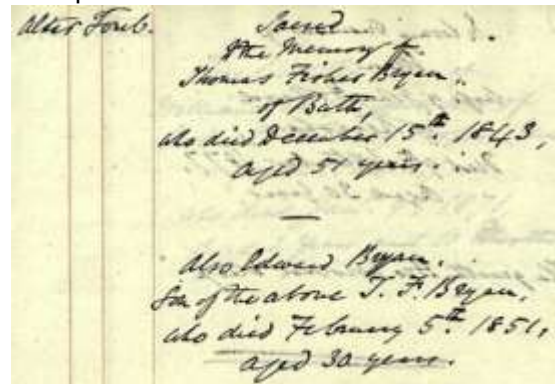 Altar Tomb.
Sacred
to the Memory of
Thomas Fisher Bryan
of Bath,
who died December 15th. 1843,
aged 51 years.
Also Edward Bryan,
Son of the above T. F. Bryan,
who died February 5th. 1851,
aged 30 years.